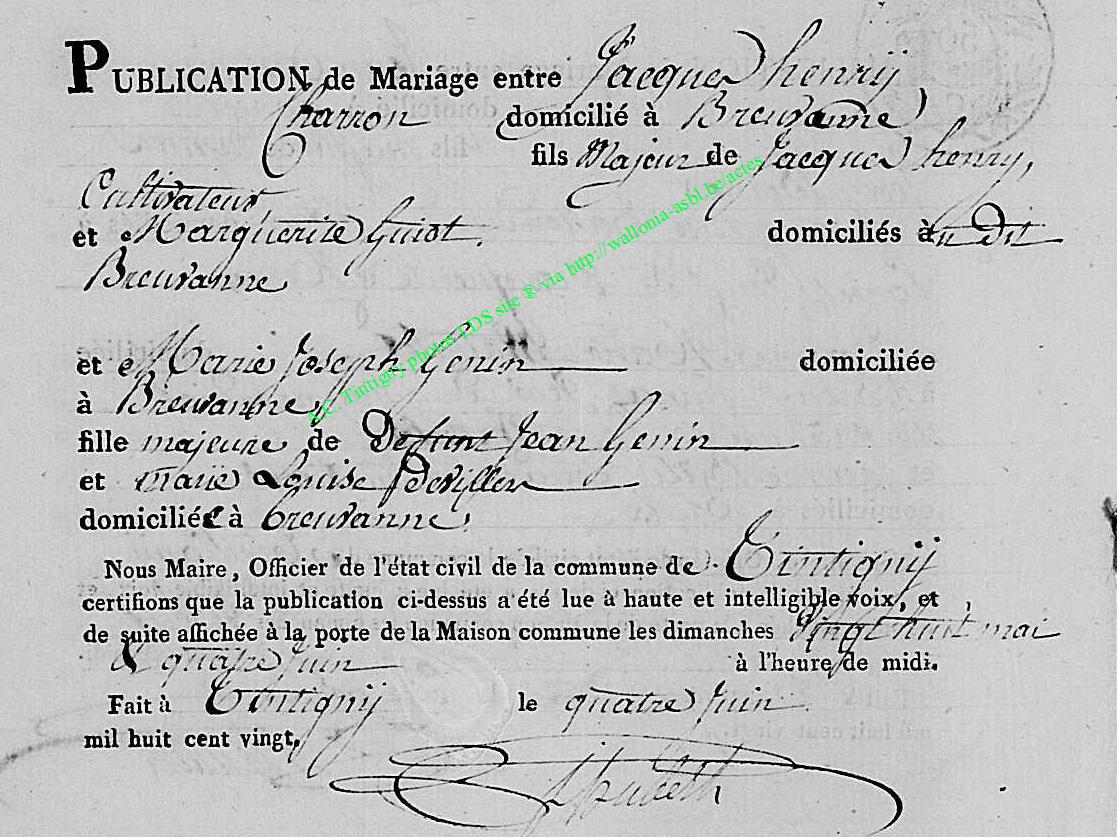 PUBLICATION de Mariage entre Jacques henrij
Charron domicilié à Breuvanne
fils Majeur de Jacques henry,
Cultivateur,
et Marguerite Guiot domiciliés à u dit
Breuvanne
et Marie Joseph Genin domiciliée
à Breuvanne,
fille majeure de Defunt Jean Genin
et Marie Louise Deviller
domiciliée à breuvanne,
Nous Maire, Officier de l'état civil de la commune de Tintignij
certifions que la publication ci-dessus a été lue à haute et intelligible voix, et
de suite affichée à la porte de la Maison commune les dimanches vingt huit mai
& quatre juin à l'heure de midi.
Fait à Tintignij le quatre juin
mil huit cent vingt,
A.C. Tintigny photos LDS site ® via http://wallonia-asbl.be/actes